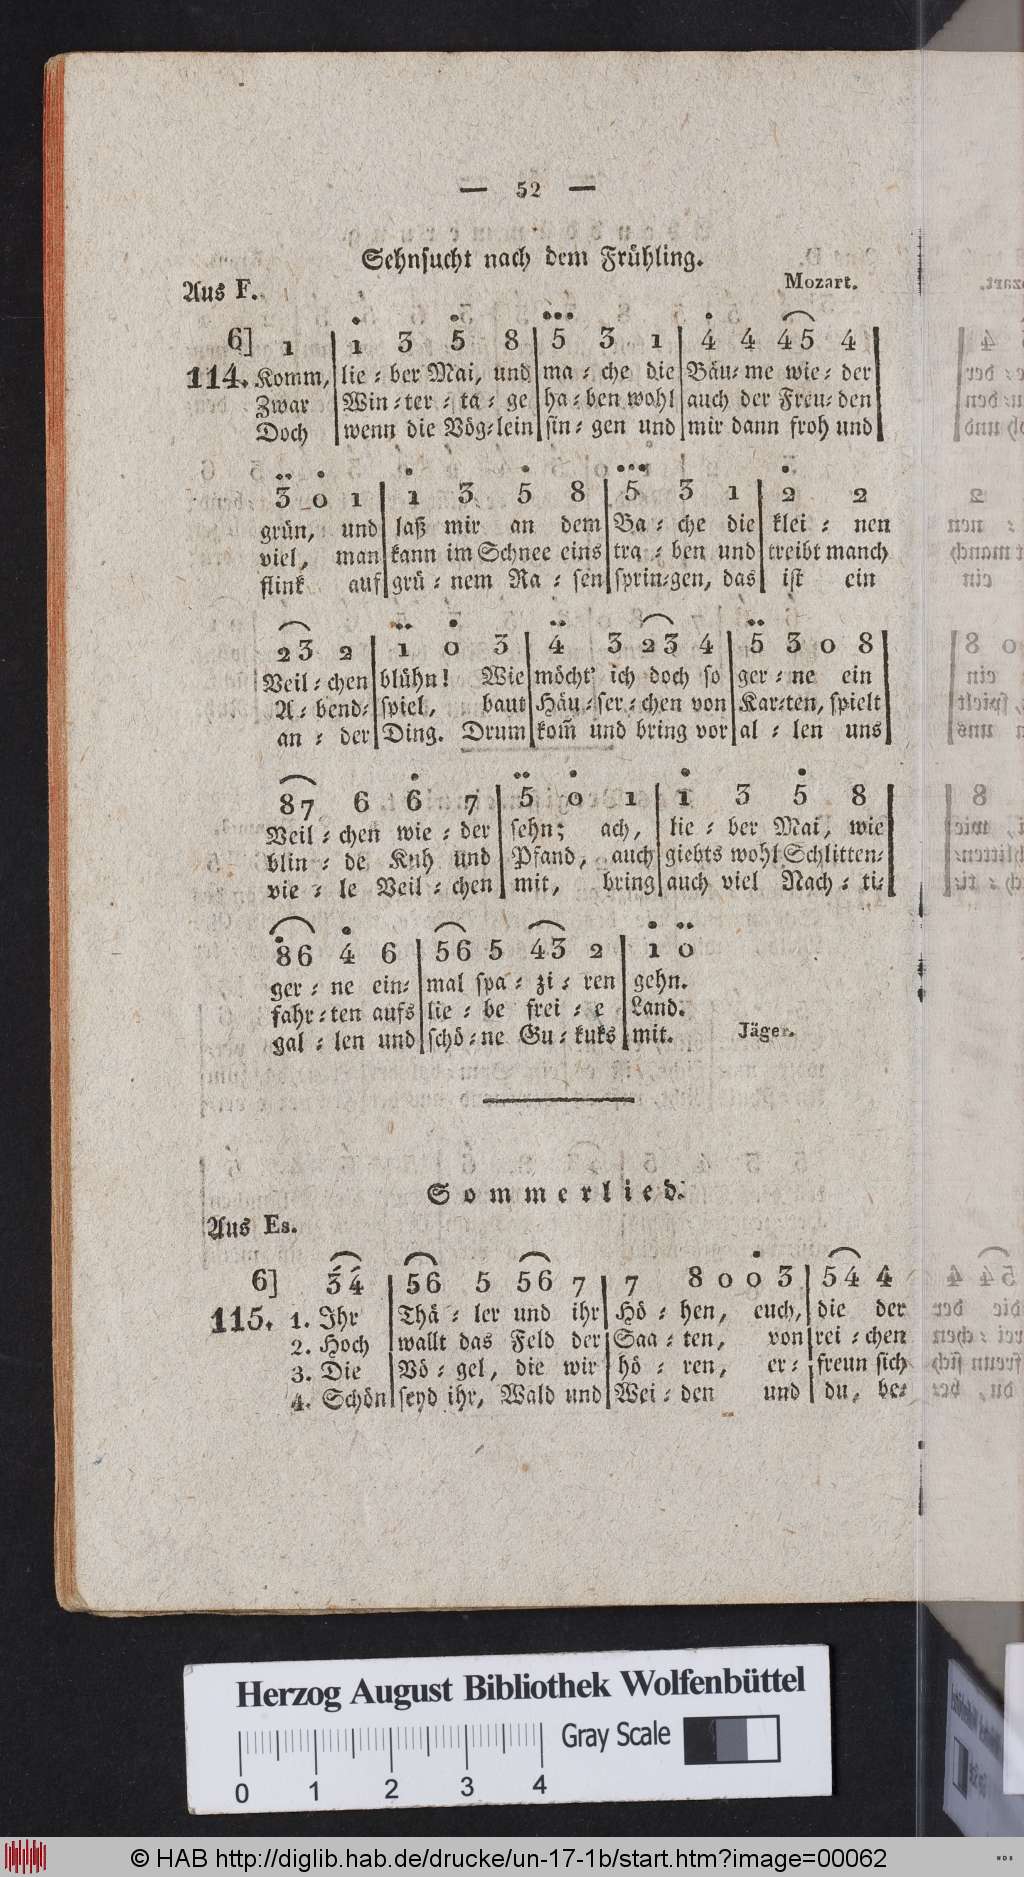 — 52 —
Sehnsucht nach dem Frühling.
Aus F.
Mozart.
6] 1 | 1 3 5 8 | 5 3 1 | 4 4 45 4 |
114. Komm, | lie-ber Mai, und | ma-che die | Bäu-me wie-der |
Zwar | Win-ter-ta-ge | ha-ben wohl | auch der Freu-den |
Doch | wenn die Vög-lein | sin-gen und | mir dann froh und |
3 0 1 | 1 3 5 8 | 5 3 1 | 2 2
grün, und | laß mir an dem | Ba-che die | klei-nen
viel, man | kann im Schnee eins | tra-ben und | treibt manch
flink auf | grü-nem Ra-sen | sprin-gen, das | ist ein
23 2 | 1 0 3 | 4 3 23 4 | 5 3 0 8 |
Veil-chen | blühn! Wie | möcht' ich doch so | ger-ne ein |
A-bend- | spiel, baut | Häu-ser-chen von | Kar-ten, spielt |
an-der | Ding. Drum | kom̃ und bring vor | al-len uns |
87 6 6 7 | 5 0 1 | 1 3 5 8 |
Veil-chen wie-der | sehn; ach, | lie-ber Mai, wie |
blin-de Kuh und | Pfand, auch | giebts wohl Schlitten- |
vie-le Veil-chen | mit, bring | auch viel Nach-ti- |
86 4 6 | 56 5 43 2 | 1 0
ger-ne ein- | mal spa-zi-ren | gehn.
fahr-ten aufs | lie-be frei-e | Land.
gal-len und | schö-ne Gu-kuks | mit. Jäger.
Sommerlied.
Aus Es.
6] 34 | 56 5 56 7 | 7 8 0 0 3 | 54 4
115. 1. Ihr | Thä-ler und ihr | Hö-hen, euch, | die der
2. Hoch | wallt das Feld der | Saa-ten, von | rei-chen
3. Die | Vö-gel, die wir | hö-ren, er- | freun sich
4. Schön | seyd ihr, Wald und | Wei-den und | du, be-
Herzog August Bibliothek Wolfenbüttel
Gray Scale
0 1 2 3 4
© HAB http://diglib.hab.de/drucke/un-17-1b/start.htm?image=00062